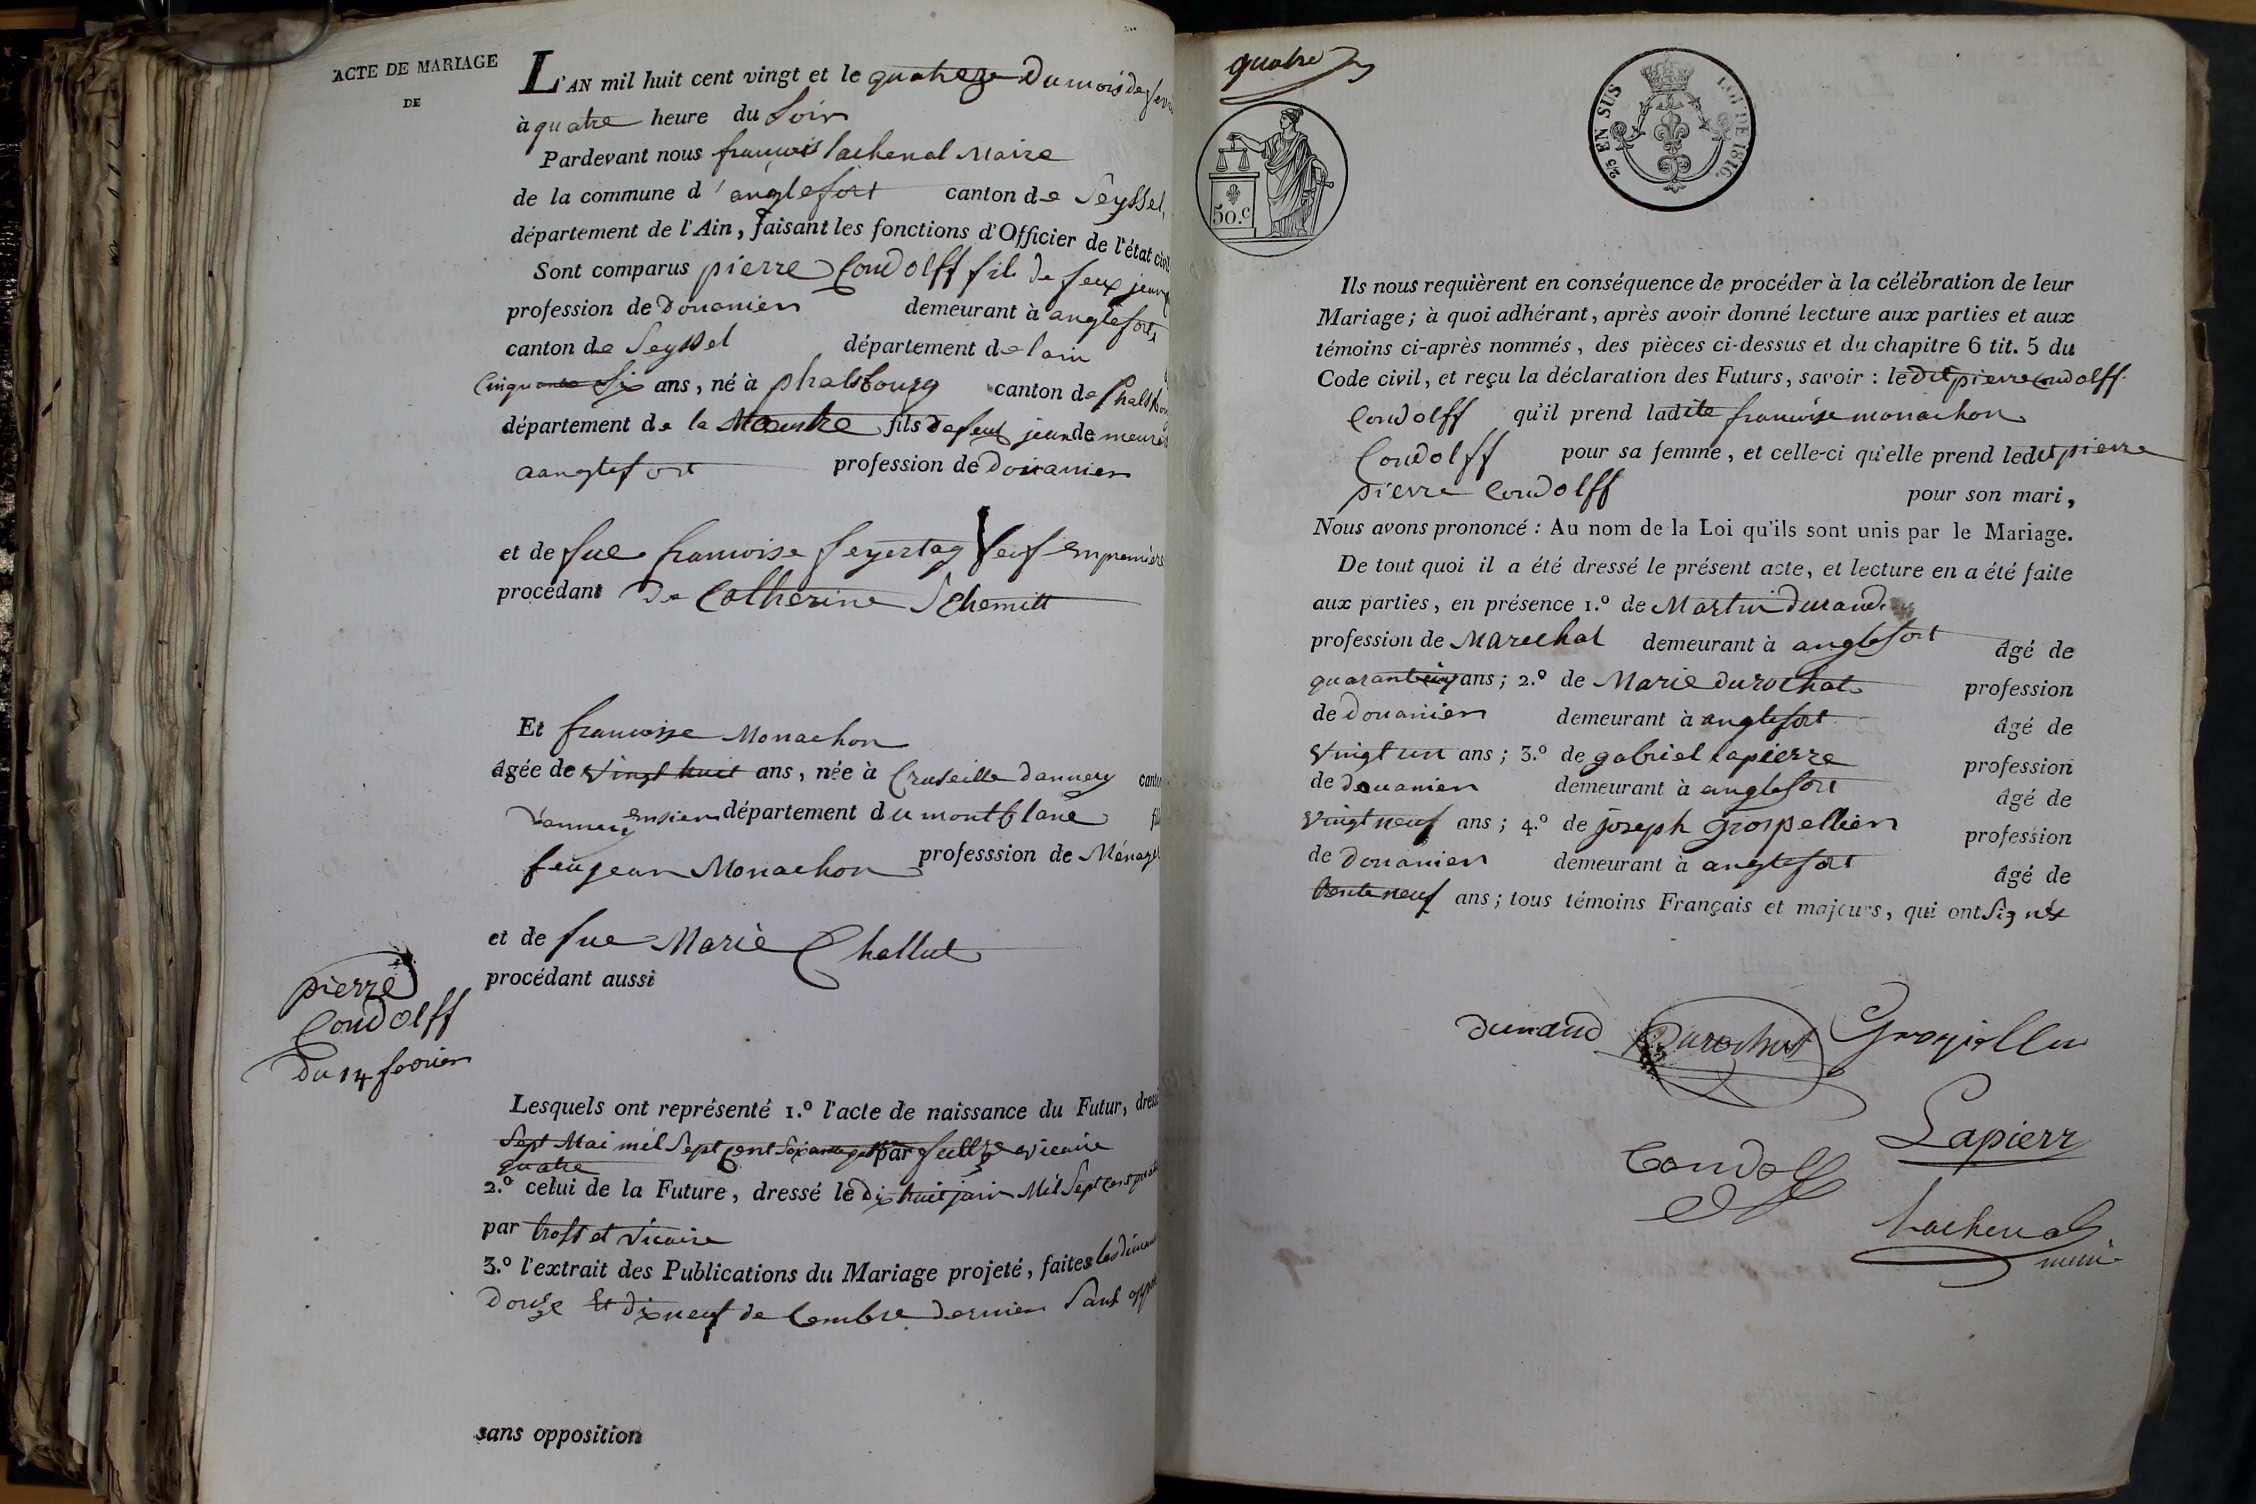 ACTE DE MARIAGE
DE
L'AN mil huit cent vingt et le quatorze du mois de fev
à quatre heure du Soir
Pardevant nous françois lachenal Maire
de la commune d'anglefort canton de Seyssel,
département de l'Ain, faisant les fonctions d'Officier de l'état civil
Sont comparus pierre Condolff fils de feux jean
profession de Douanier demeurant à anglefort
canton de Seyssel département de lain
Cinquante Six ans, né à phalsbourg canton de Phalsbou
département de la Meurthe fils de feux jean demeura
a anglefort profession de Douanier
et de fue francoise feyertag Veuf en premiere
procédant de Catherine Schemitt
Et francoise Monachon
âgée de Vingt huit ans, née à Cruseille dannecy canton
dannecy ensien département du montblanc fil
feu jean Monachon professsion de Ménagè
et de fue Marie Challut
procédant aussi
pierre
Condolff
Du 14 fevrier
Lesquels ont représenté 1.º l'acte de naissance du Futur, dressé
Sept Mai mil Sept Cent Soixante par vicaire
quatre
2.º celui de la Future, dressé le dix huit juin Mil Sept Cens quat
par trosset Vicaire
3.º l'extrait des Publications du Mariage projeté, faites les diman
Douze Et dixneuf decembre dernier Sans oppo
sans opposition
quatre
50.c
25 EN SUS
LOI DE 1816.
Ils nous requièrent en conséquence de procéder à la célébration de leur
Mariage; à quoi adhérant, après avoir donné lecture aux parties et aux
témoins ci-après nommés, des pièces ci-dessus et du chapitre 6 tit. 5 du
Code civil, et reçu la déclaration des Futurs, savoir: le dit pierre Condolff
Condolff qu'il prend ladite francoise monachon
Condolff pour sa femme, et celle-ci qu'elle prend ledit pierre
pierre Condolff pour son mari,
Nous avons prononcé: Au nom de la Loi qu'ils sont unis par le Mariage.
De tout quoi il a été dressé le présent acte, et lecture en a été faite
aux parties, en présence 1.º de Martin dunand
profession de Marechal demeurant à anglefort âgé de
ans; 2.º de Marie durochat profession
de Douanier demeurant à anglefort âgé de
Vingt un ans; 3.º de gabriel lapierre profession
de douanier demeurant à anglefort âgé de
Vingt neuf ans; 4.º de joseph grospellier profession
de Douanier demeurant à anglefort âgé de
trente neuf ans; tous témoins Français et majeurs, qui ont Signés
dunand Durochat Grospellier
Lapierr
Condolff
Lachenal